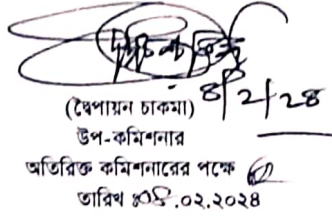 ৪/২/২৪
(দ্বৈপায়ন চাকমা)
উপ-কমিশনার
অতিরিক্ত কমিশনারের পক্ষে
তারিখ ০৪.০২.২০২৪